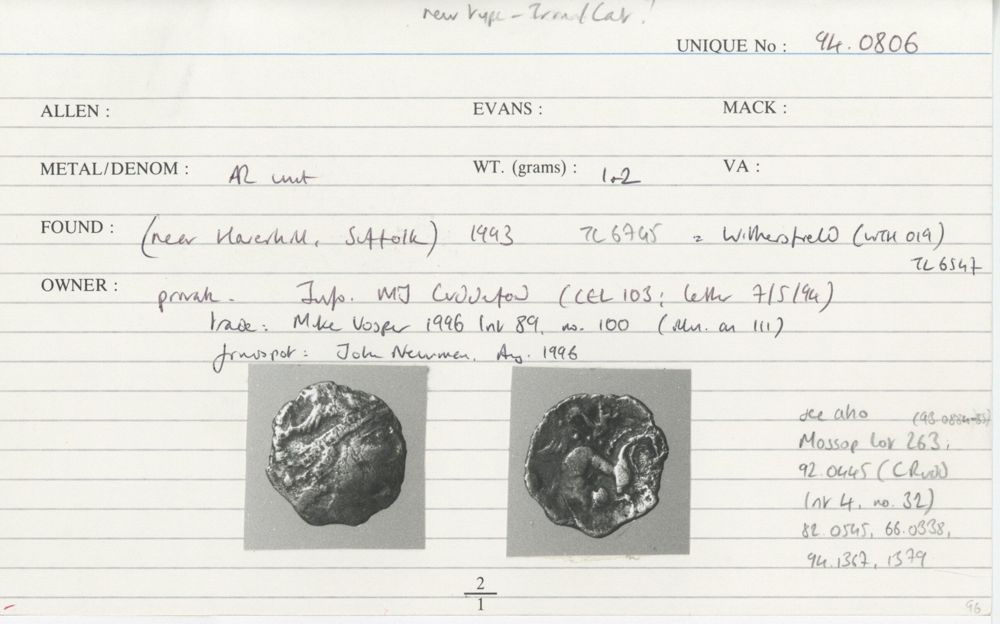 new type -
UNIQUE No : 94.0806
ALLEN : EVANS : MACK :
METAL/DENOM : AR unit WT. (grams) : 1.2 VA :
FOUND : (near Haverhill, Suffolk) 1993 TL 6745 = Withersfield (WTH 019)
TL 6547
OWNER : private. Info. MJ (CEL 103; letter 7/5/94)
trade: Mike Vosper 1996 list 89, no. 100 (111)
findspot: John Newman, Aug. 1996
see also
Mossop lot 263,
92.0445 (CRudd
list 4, no. 32)
82.0545, 66.0338,
94.1367, 1379
2
1
96